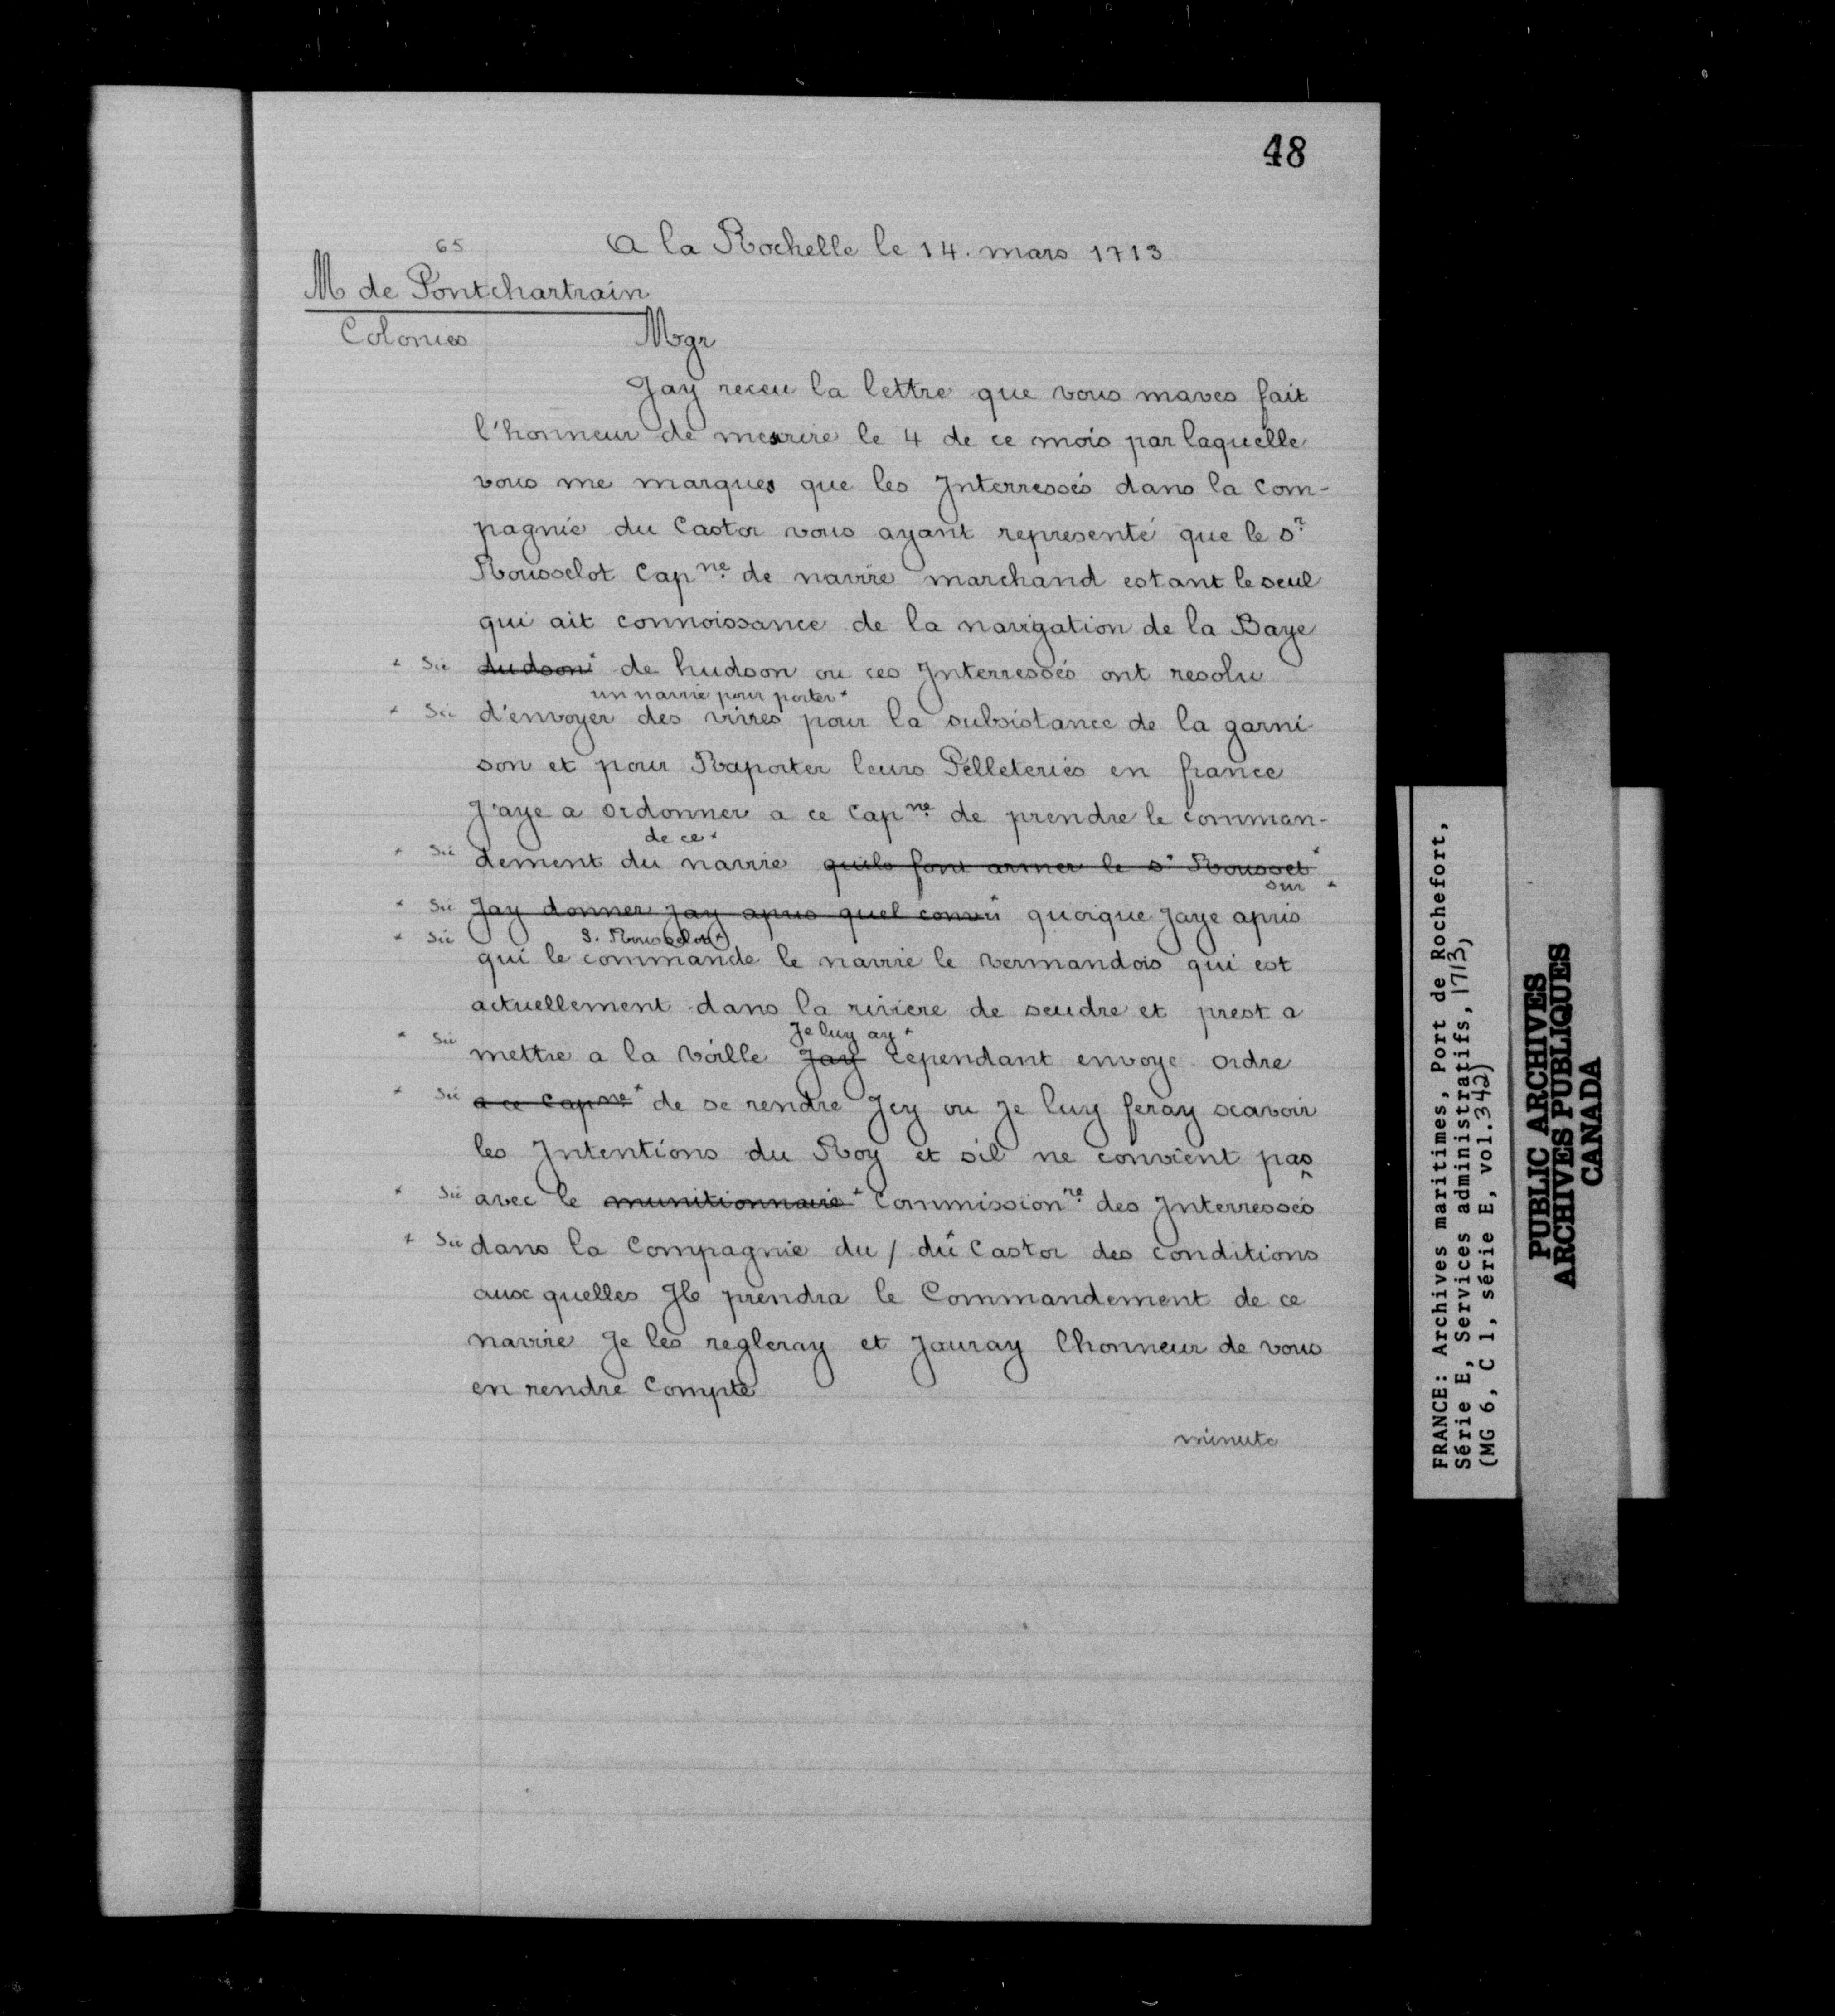 48
65
A la Rochelle le 14. mars 1713
M de Pontchartrain
Colonies
Mgr
Jay receu la lettre que vous maves fait
l'honneur de mescrire le 4 de ce mois par laquelle
vous me marques que les Jnterressés dans la com-
pagnie du Castor vous ayant representé que le Sr
Rousselot Capne de navire marchand estant le seul
qui ait connoissance de la navigation de la Baye
* Sic dudson* de hudson ou ces Jnterressés ont resolu
un navire pour porter*
* Sic d'envoyer des vivres pour la subsistance de la garni-
son et pour Raporter leurs Pelleteries en france
J'aye a ordonner a ce Capne de prendre le comman-
de ce*
* Sic dement du navire quils font armer le Sr Rousset*
sur *
* Sic Jay donner Jay apris quel convii quoique Jaye apris
* Sic S. Rousselot*
qui le commande le navire le vermandois qui est
actuellement dans la riviere de seudre et prest a
Je luy ay*
* Sic mettre a la Voille Jay cependant envoye ordre
* Sic a ce Capne* de se rendre Jcy ou Je luy feray scavoir
les Jntentions du Roy et sil ne convient pas
* Sic avec le munitionnaire* Commissionre des Jnterressés
* Sic dans la Compagnie du / du* Castor des conditions
aux quelles Jls prendra le Commandement de ce
navire Je les regleray et Jauray lhonneur de vous
en rendre Compte
minute
FRANCE: Archives maritimes, Port de Rochefort,
Série E, Services administratifs, 1713,
(MG 6, C 1, série E, vol. 342)
PUBLIC ARCHIVES
ARCHIVES PUBLIQUES
CANADA